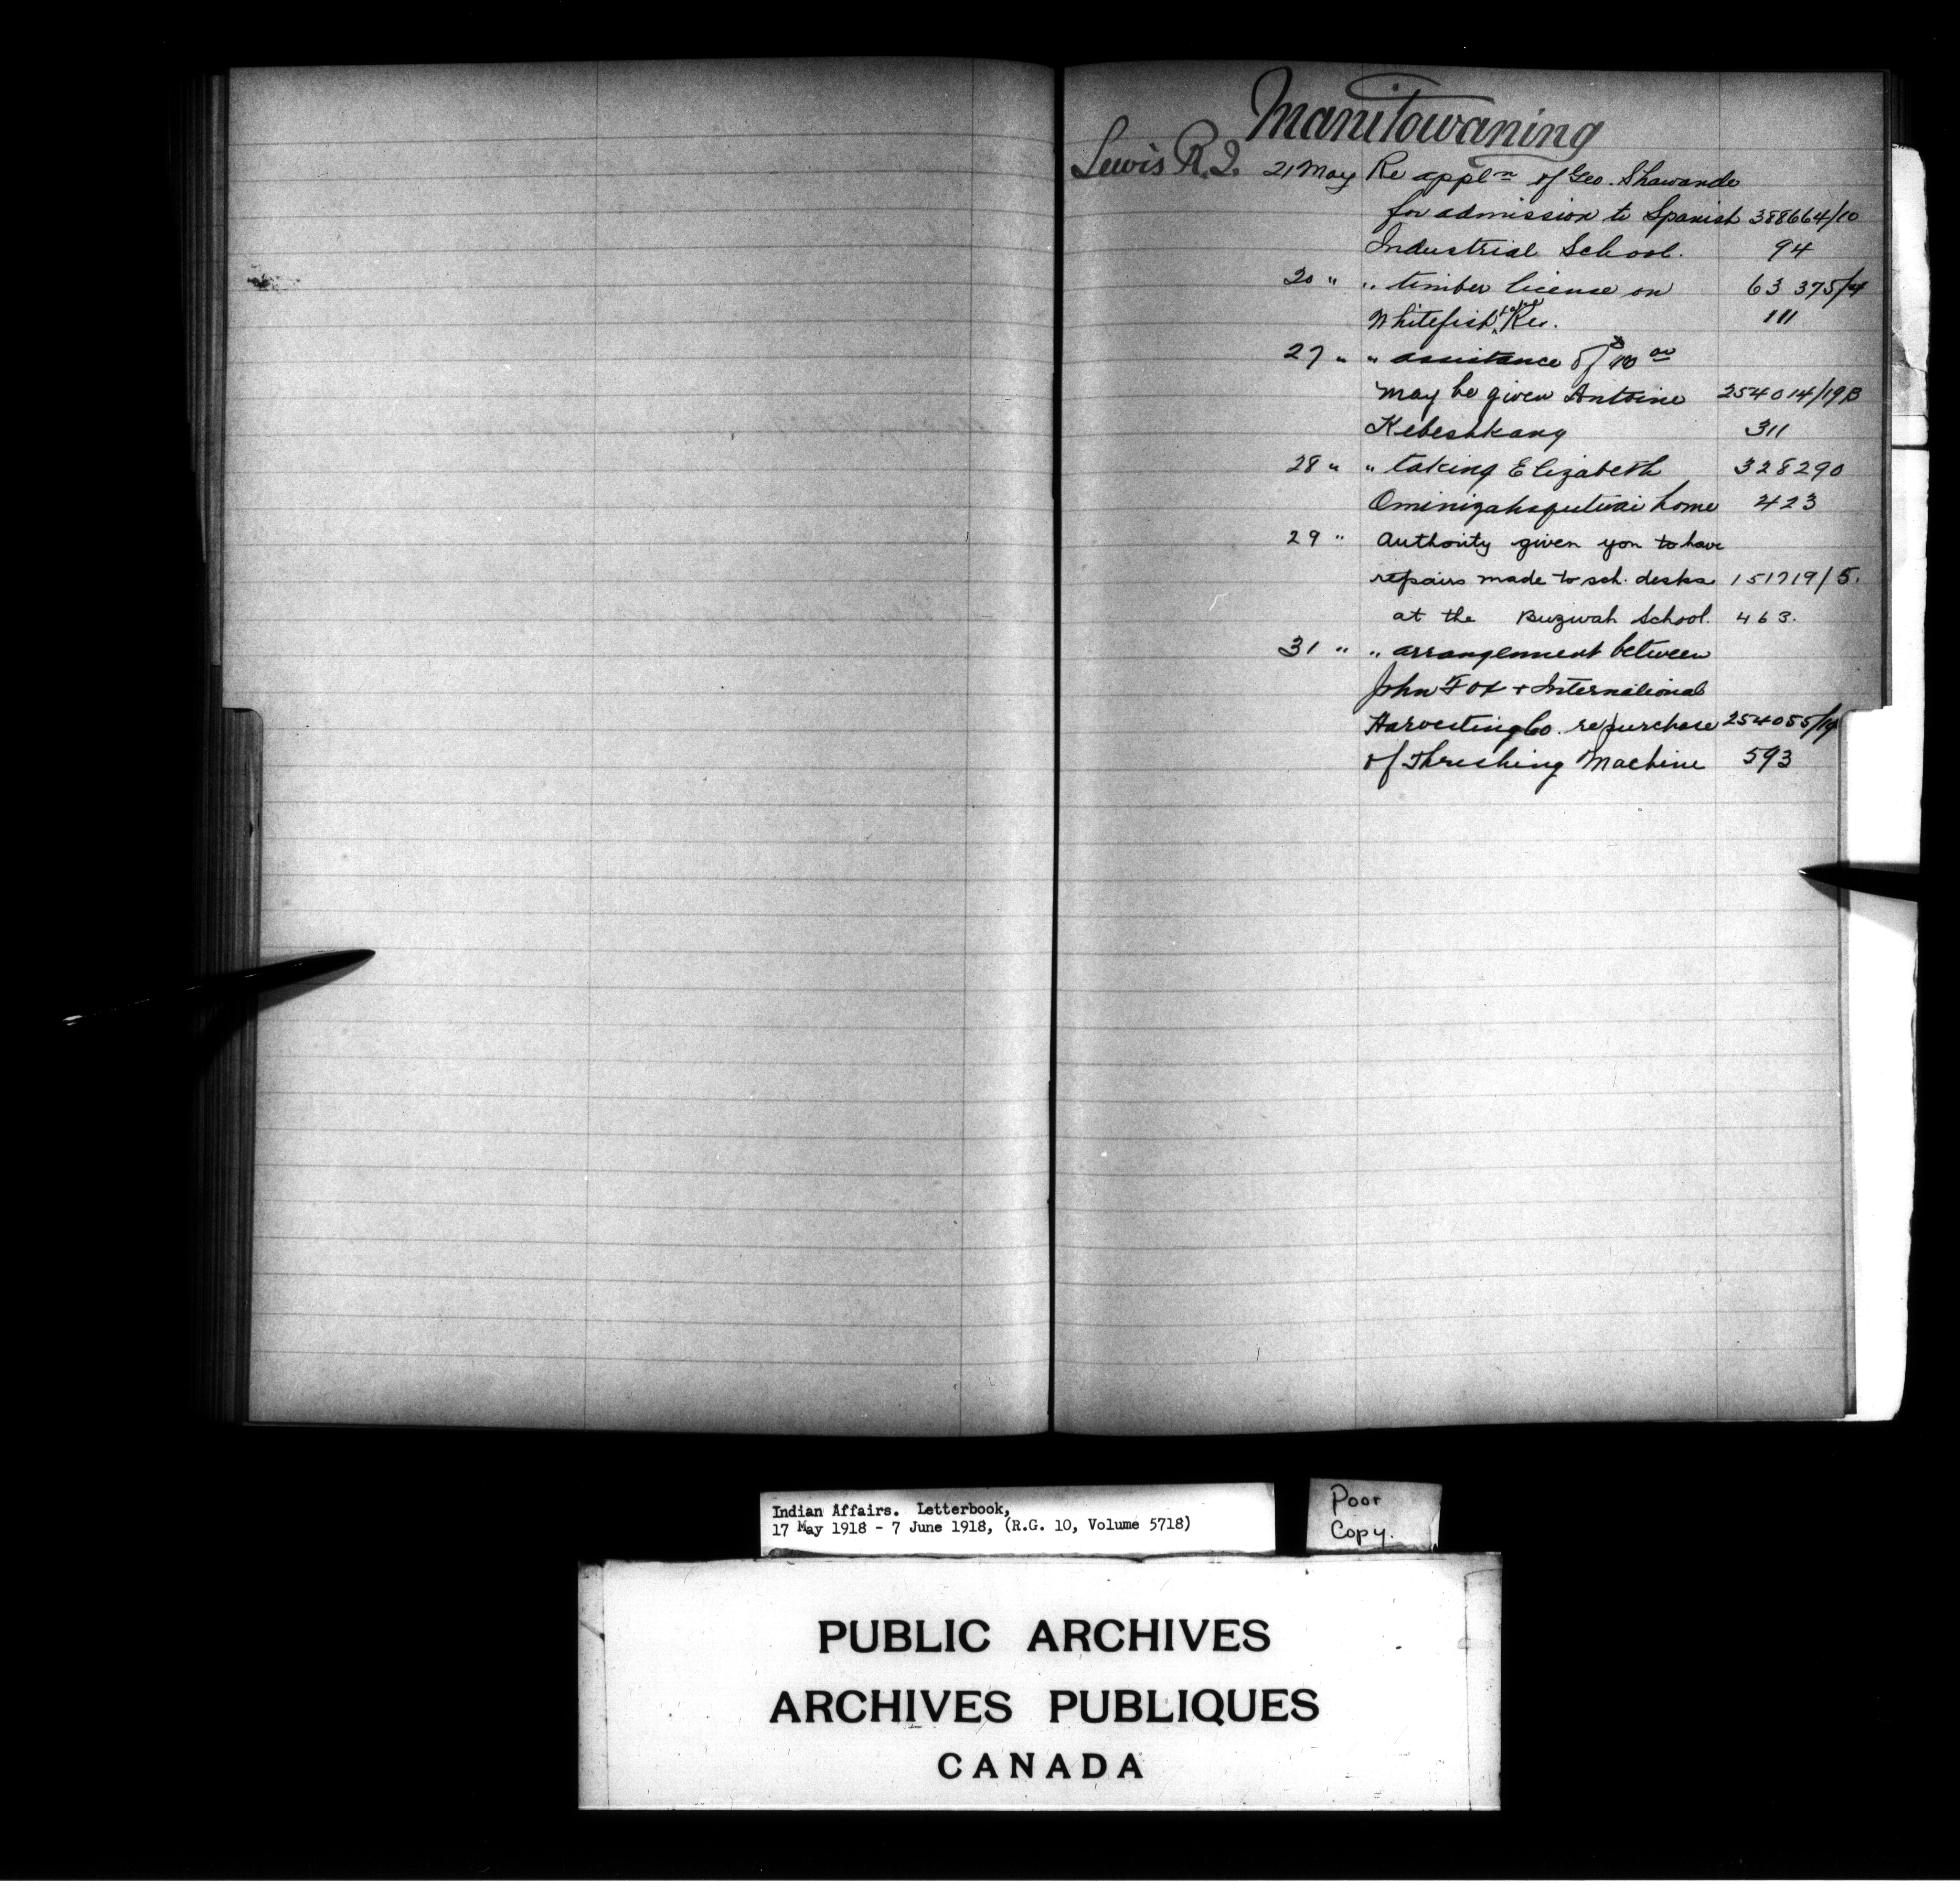 Manitowaning
Lewis R.J. 21 May Re appln of Geo. Shawande
for admission to Spanish 388664/10
Industrial School. 94
20 " " timber license on 63 375/4
Whitefish Res. 111
27 " " assistance of $10 00
may be given Antoine 254014/19B
Kebeshkang 311
28 " " taking Elizabeth 328290
home 423
29 " Authority given you to have
repairs made to sch. desks 151719/5.
at the Buzwah School. 463.
31 " " arrangement between
John Fox + International
Harvesting Co. re purchase 254055/19
of Threshing Machine 593
Indian Affairs. Letterbook,
17 May 1918 - 7 June 1918, (R.G. 10, Volume 5718)
Poor
Copy.
PUBLIC ARCHIVES
ARCHIVES PUBLIQUES
CANADA